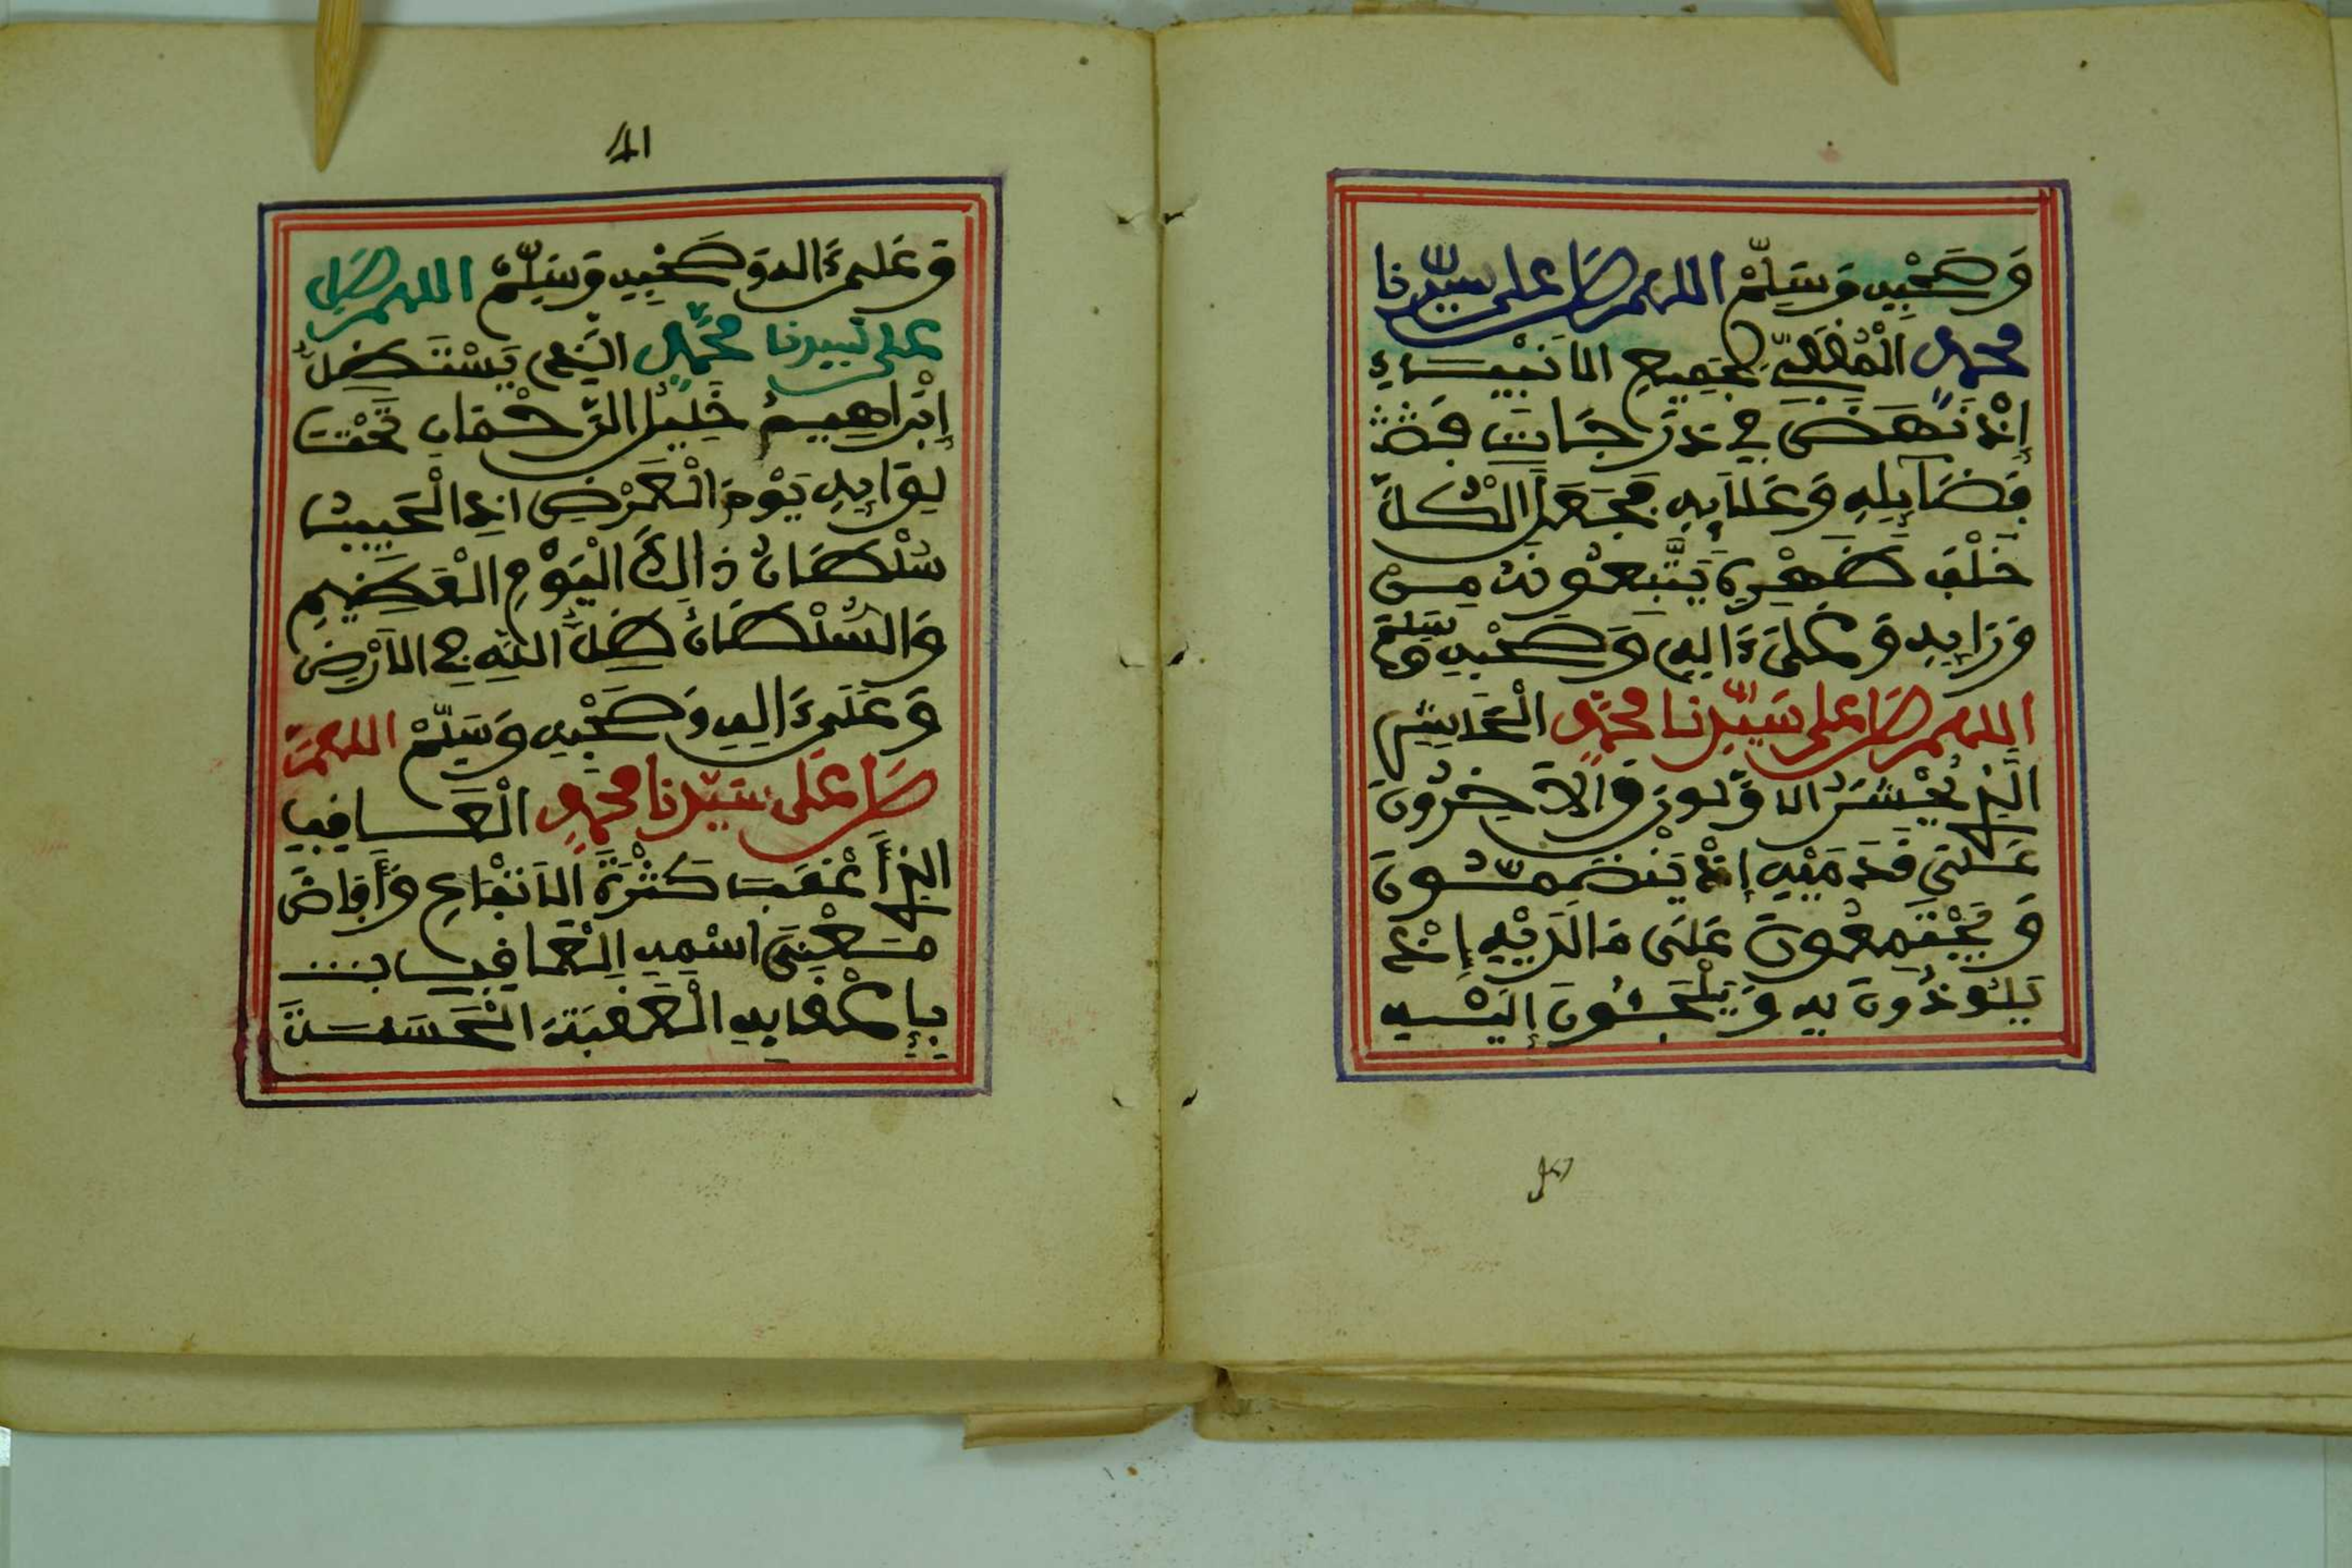 وَصَحْبِهِ وَسَلِّمْ اللهم صل على سيدنا
محمدٍ الْمُقَفِّي لِجَمِيعِ الَانْبِيَاءِ
إِذْ نَهَضَ فِي دَرَجَاتِ
فَضَايِلِهِ وَعَلَايِهِ فَجَعَلَ الْكُلَّ
خَلْفَ ظَهْرِهِ يَتَّبِعُونَهُ مِنْ
وَرَايِهِ وَعَلَى ءَالِهِ وَصَحْبِهِ وَسَلِّمْ
اللهم صل على سَيِّدِنا محمدٍ الْحَاشِرِ
الَّذِي يُحْشَرُ الَاوَّلُونَ وَالَاخِرُونَ
عَلَى قَدَمَيْهِ إِذْ يَنْضَمُّونَ
وَيَجْتَمِعُونَ عَلَى مَا لَدَيْهِ إِذْ
يَلُوذُونَ بِهِ وَيَلْجَئُونَ إِلَيْهِ
41
وَعَلَى ءَالِهِ وَصَحْبِهِ وَسَلِّمْ اللهم صَلِّ
على سيدنا محمدٍ الَّذِي يَسْتَظِلُّ
إِبْرَاهِيمُ خَلِيلُ الرَّحْمَانِ تَحْتَ
لِوَايِهِ يَوْمَ الْعَرْضِ اذِ الْحَبِيبُ
سُلْطَانُ ذَالِكَ الْيَوْمِ الْعَظِيمِ
وَالسُّلْطَانُ ظِلُّ اللَّهِ فِي الَارْضِ
وَعَلَى ءَالِهِ وَصَحْبِهِ وَسَلِّمْ اللهم
صَلِّ عَلَى سَيِّدِنا محمدٍ الْعَاقِبِ
الذِي أَعْقَبَ كَثْرَةَ الَانْتِفَاعِ وَأَفَاضَ
مَعْنَى اسْمِهِ الْعَاقِبِ
بِإِعْقَابِهِ الْعُقْبَةَ الْحَسَنَةَ